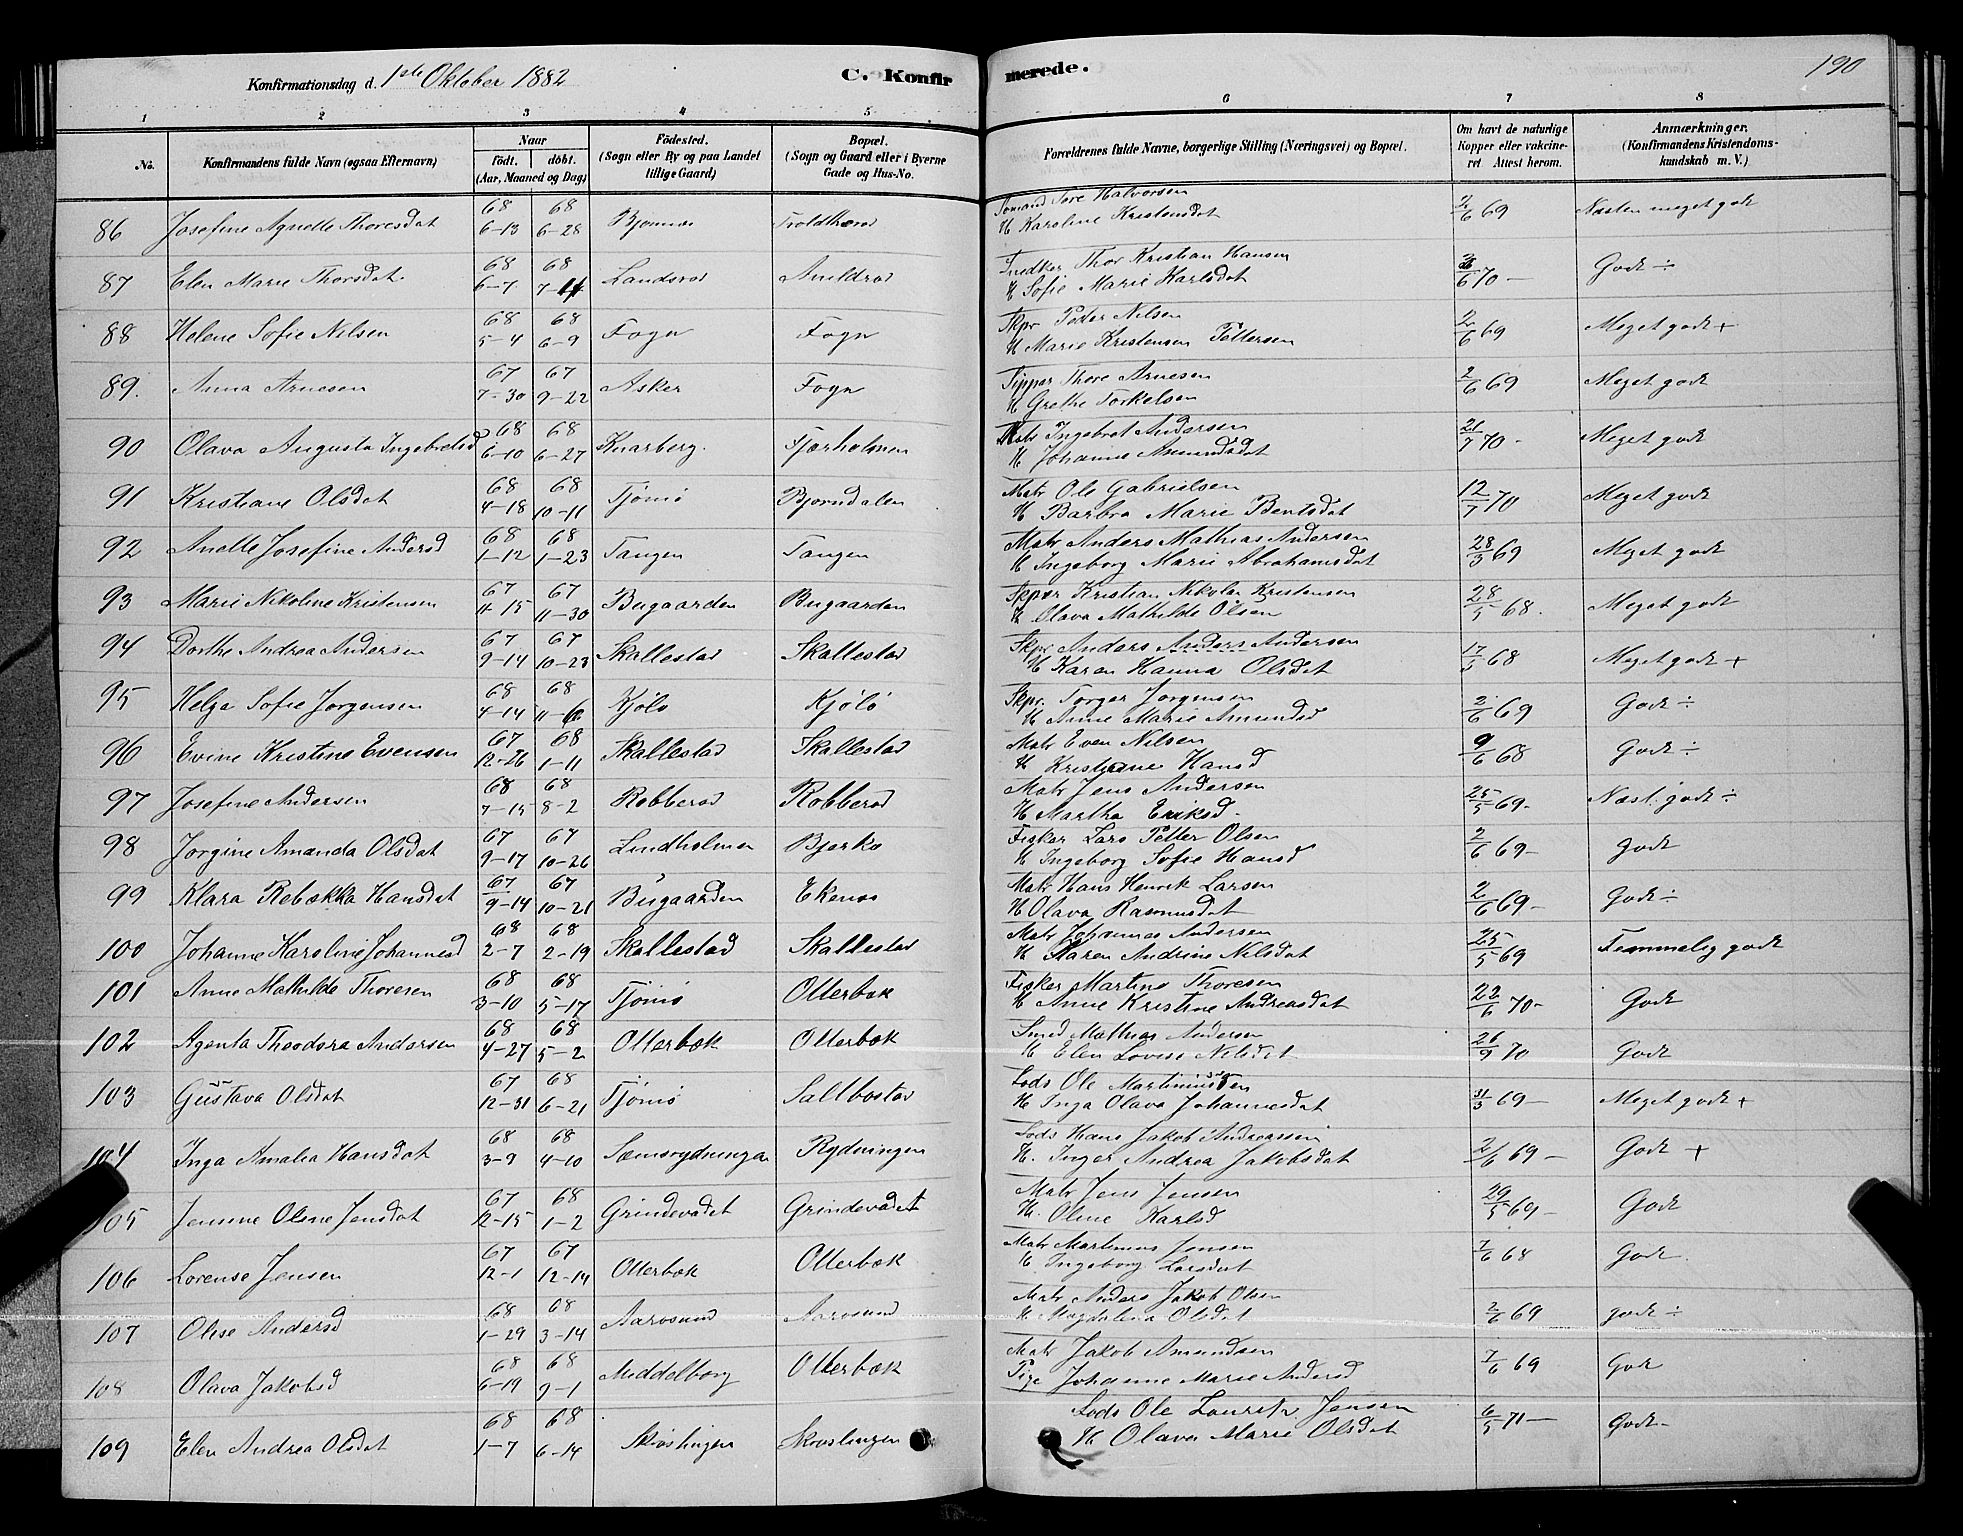 Konfirmationsdag d. 1ste Oktober 1882 C. Konfirmerede. 190
1 2 3 4 5 6 7 8
No. Konfirmandens fulde Navn (ogsaa Efternavn) Naar födt. döbt. (Aar, Maaned og Dag) Födested. (Sogn eller By og paa Landet tillige Gaard) Bopæl. (Sogn og Gaard eller i Byerne Gade og Hus-No. Forældrenes fulde Navne, borgerlige Stilling (Næringsvei) og Bopæl. Om havt de naturlige Kopper eller vakcineret. Attest herom. Anmærkninger. (Konfirmandens Kristendomskundskab m. V.)
86 Josefine Agnette Thoresdat 68 6-13 68 6-28 Tomand Tore Halvorsen
H Karoline Kristensdat 2/6 69 Næsten meget godt
87 Elen Marie Thorsdat. 68 6-7 68 Landsrod Snedker Thor Kristian Hansen
H Sofie Marie Karlsdat 70- Godt ÷
88 Helene Sofie Nilsen 68 5-4 68 6-9 Fogn Fogn Skpr Peder Nilsen
H Marie Kristensen Pettersen 2/6 69 Meget godt +
89. Anna Arnesen 67 7-30 67 9-22 Asker Fogn Thore Arnesen
H Grethe Torkelsen 2/6 69 Meget godt
90 Olava Augusta Ingebretsd 68 6-10 68 6-27 Knarberg. Fjærholmen Matr Ingebret Andersen
H Johanne Amundsdat 21/7 70- Meget godt
91 Kristiane Olsdat 68 4-18 68 10-11 Tjömö Bjorndalen Matr Ole Gabrielsen
H Barbra Marie Bentsdat 12/7 70 Meget godt
92 Anette Josefine Andersd 68 1-12 68 1-23 Tangen Tangen Matr Anders Mathias Andersen
H Ingeborg Marie Abrahamsdat 28/3 69 Meget godt
93 Marie Nikoline Kristensen 67 4-15 67 11-30 Bugaarden Bugaarden Skpr Kristian Nikolai Kristensen
H Olava Mathilde Olsen 28/5 68. Meget godt
94 Dorthe Andrea Andersen 67 9-14 67 10-23 Skallestad Skallestad Skpr Anders Anders Andersen
H Karen Hanna Olsdat 17/5 68 Meget godt +
95 Helga Sofie Jorgensen 68 4-14 68 Kjölö Kjölö Skpr. Torger Jorgensen
H Anne Marie Amundsd 2/6 69 Godt ÷
96 Evine Kristine Evensen 67 12-26 68 1-11 Skallestad Skallestad Matr Even Nilsen
H Kristiane Hansd 9/6 68 Godt ÷
97 Josefine Andersen 68 7-15 68 8-2 Robberod Robberod Matr Jens Andersen
H Martha Eriksd. 25/5 69- Næst. godt ÷
98 Jorgine Amanda Olsdat 67 9-17 67 10-26 Lindholmen Bjerko Fisker Lars Petter Olsen
H Ingeborg Sofie Hansd 2/6 69- godt
99 Klara Rebekka Hansdat 67 9-14 67 10-21 Bugaarden Ekenes Matr Hans Henrik Larsen
H Olava Rasmusdat 2/6 69- Godt ÷
100 Johanne Karoline Johannesd 68 2-7 68 2-19 Skallestad Skallestad Matr Johannes Andersen
H Karen Andrine Nilsdat 25/5 69 Temmelig godt
101 Anne Mathilde Thoresen 68 3-10 68 5-17 Tjömö Otterbæk Fisker Martin Thoresen
H Anne Kristine Andreasdat 22/6 70- Godt
102 Agenta Theodora Andersen 68 4-27 68 5-2 Otterbæk Otterbæk Smed Mathias Andersen
H Elen Lovise Nilsdat 26/9 70 Godt
103 Gustava Olsdat 67 12-31 68 6-21 Tjömö Saltbostad Lods Ole Martiniussen
H Inga Olava Johannesdat 31/3 69- Meget godt +
104 Inga Amalia Hansdat 68 3-9 68 4-10 Sæmsrydningen Rydningen Lods Hans Jakob Andreassen
H. Inger Andrea Jakobsdat 2/6 69- Godt +
105 Jensine Oline Jensdat 67 12-15 68 1-2 Grindevadet Grindevadet Matr Jens Jensen
H. Oline Karlsd 29/5 69- Godt
106 Lorense Jensen 67 12-1 67 12-14 Otterbæk Otterbæk Matr Martinius Jensen
H. Ingeborg Larsdat 7/6 68 Godt.
107 Olise Andersd 68 1-29 68 3-14 Aarosund Aarosund Matr Anders Jakob Olsen
H Magdalena Olsdat 2/6 69 godt ÷
108 Olava Jakobsd 68 6-19 68 9-1 Middelborg Otterbæk Matr Jakob Amundsen
Pige Johanne Marie Andersd 7/6 69 Godt
109 Elen Andrea Olsdat 68 1-7 68 6-14 Skroslingen Skroslingen Lods Ole Lauritz Jensen
H Olava Marie Olsdat 6/5 71- Godt-